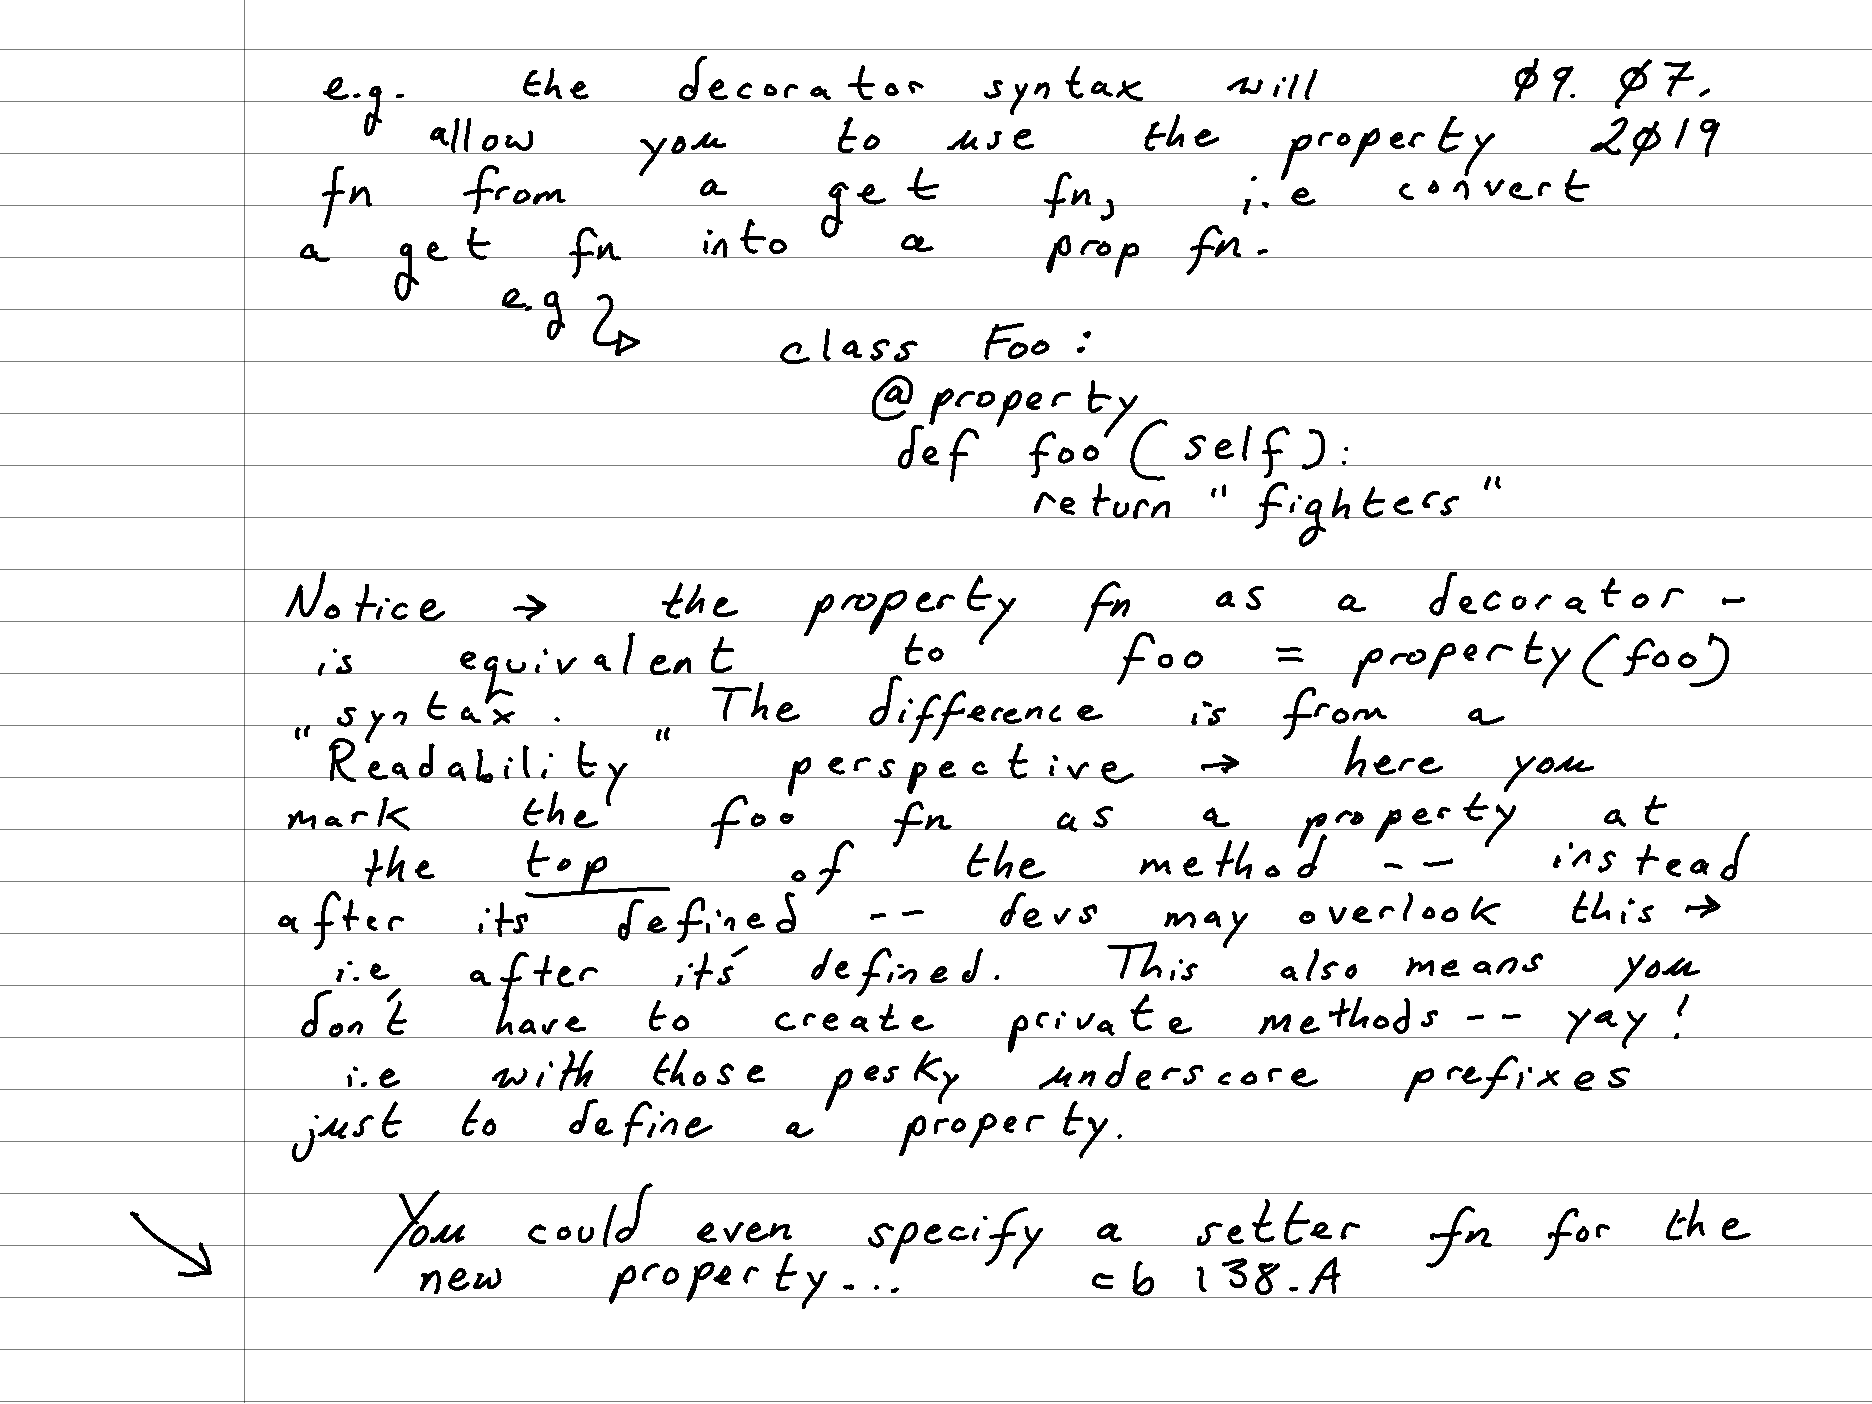 e.g. the decorator syntax will 09.07.
allow you to use the property 2019
fn from a get fn, i.e convert
a get fn into a prop fn.
e.g
class Foo:
@property
def foo(self):
return "fighters"
Notice → the property fn as a decorator -
is equivalent to foo = property(foo)
syntax. The difference is from a
"Readability" perspective → here you
mark the foo fn as a property at
the top of the method -- instead
after its defined -- devs may overlook this →
i.e after it's defined. This also means you
don't have to create private methods -- yay!
i.e with those pesky underscore prefixes
just to define a property.
You could even specify a setter fn for the
new property... cb 138.A